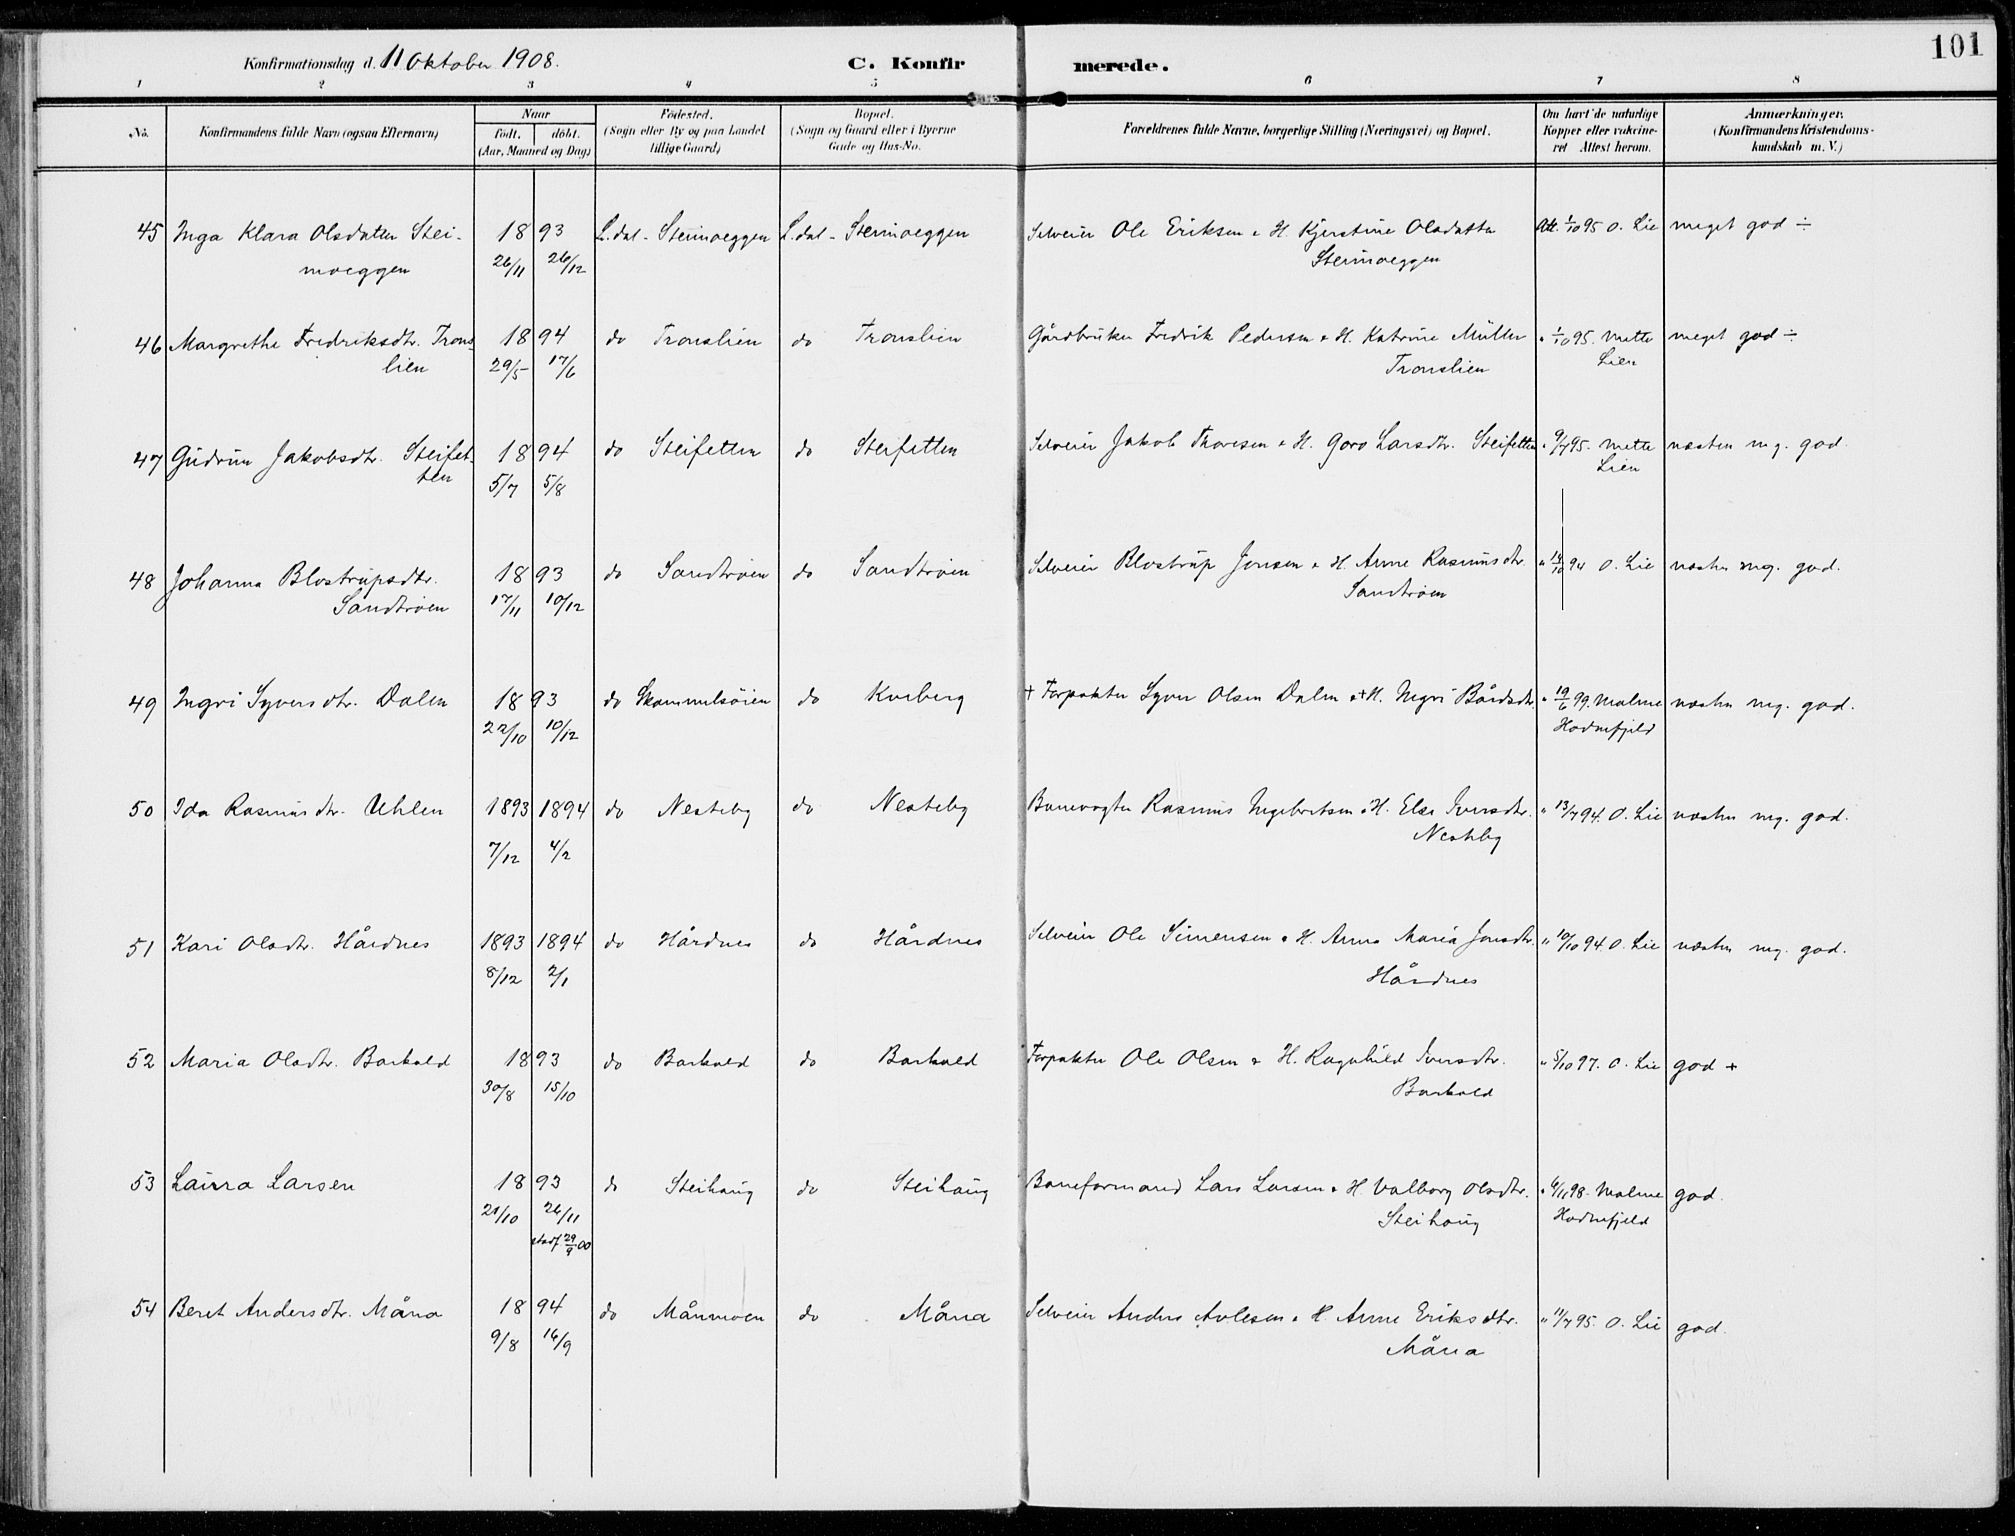 101
Konfirmationsdag d. 11 Oktober 1908. C. Konfir merede.
1 2 3 4 5 6 7 8
No.
Konfirmandens fulde Navn (ogsaa Efternavn)
Naar
født. døbt.
(Aar, Maaned og Dag)
Fødested.
(Sogn eller By og paa Landet
tillige Gaard)
Bopæl.
(Sogn og Gaard eller i Byerne
Gade og Hus-No.
Forældrenes fulde Navne, borgerlige Stilling (Næringsvei) og Bopæl.
Om havt de naturlige
Kopper eller vaccine-
ret Attest herom.
Anmærkninger.
(Konfirmandens Kristendoms-
kundskab m. V.)
45 Inga Klara Olsdatter Stei- 18 93 L.dal - Steimoeggen L.dal - Steimoeggen Selveier Ole Eriksen & H. Kjerstine Olsdatter Att. 1/10 95 O. Lie meget god ÷
moeggen 26/11 26/12 Steimoeggen
46 Margrethe Fredriksdtr. Trons- 18 94 do Tronslien do Tronslien Gårdbruker Fredrik Pedersen & H. Katrine Müller " 1/10 95. Mette meget god ÷
lien 29/5 17/6 Tronslien Lien
47 Gudrun Jakobsdtr. Steifet- 18 94 do Steifetten do Steifetten Selveier Jakob Thoresen & H. Goro Larsdtr. Steifetten " 9/7 95. Mette næsten mg. god.
ten 5/7 5/8 Lien
48 Johanna Blostrupsdtr. 18 93 do Sandtrøen do Sandtrøen Selveier Blostrup Jonsen & H. Anne Rasmusdtr. " 14/10 94 O. Lie næsten mg. god.
Sandtrøen 17/11 10/12 Sandtrøen
49 Ingri Syversdtr. Dalen 18 93 do Skammelsøien do Kveberg + Forpakter Syver Olsen Dalen & + H. Ingri Bårdsdtr. " 19/6 99. Malene næsten mg. god.
22/10 10/12 Hodnefjeld
50 Ida Rasmusdtr. Uhlen 1893 1894 do Nesteby do Nesteby Banevogter Rasmus Ingebretsen & H. Else Iversdtr. " 13/7 94. O. Lie næsten mg. god.
7/12 4/2 Nesteby
51 Kari Olsdtr. Hårdnes 1893 1894 do Hårdnes do Hårdnes Selveier Ole Simensen & H. Anne Maria Jonsdtr. " 10/10 94 O. Lie næsten mg. god.
8/12 2/1 Hårdnes
52 Maria Olsdtr. Barkald 18 93 do Barkald do Barkald Forpakter Ole Olsen & H. Ragnhild Iversdtr. " 5/10 97. O. Lie god +
30/8 15/10 Barkald
53 Laura Larsen 18 93 do Steihaug do Steihaug Baneformand Lars Larsen & H. Valborg Olsdtr. " 6/11 98. Malene god.
21/10 26/11 Steihaug Hodnefjeld
stadf. 29/9 00
54 Beret Andersdtr. Måna 18 94 do Månmoen do Måna Selveier Anders Avlesen & H. Anne Eriksdtr. " 11/7 95. O. Lie god.
9/8 16/9 Måna